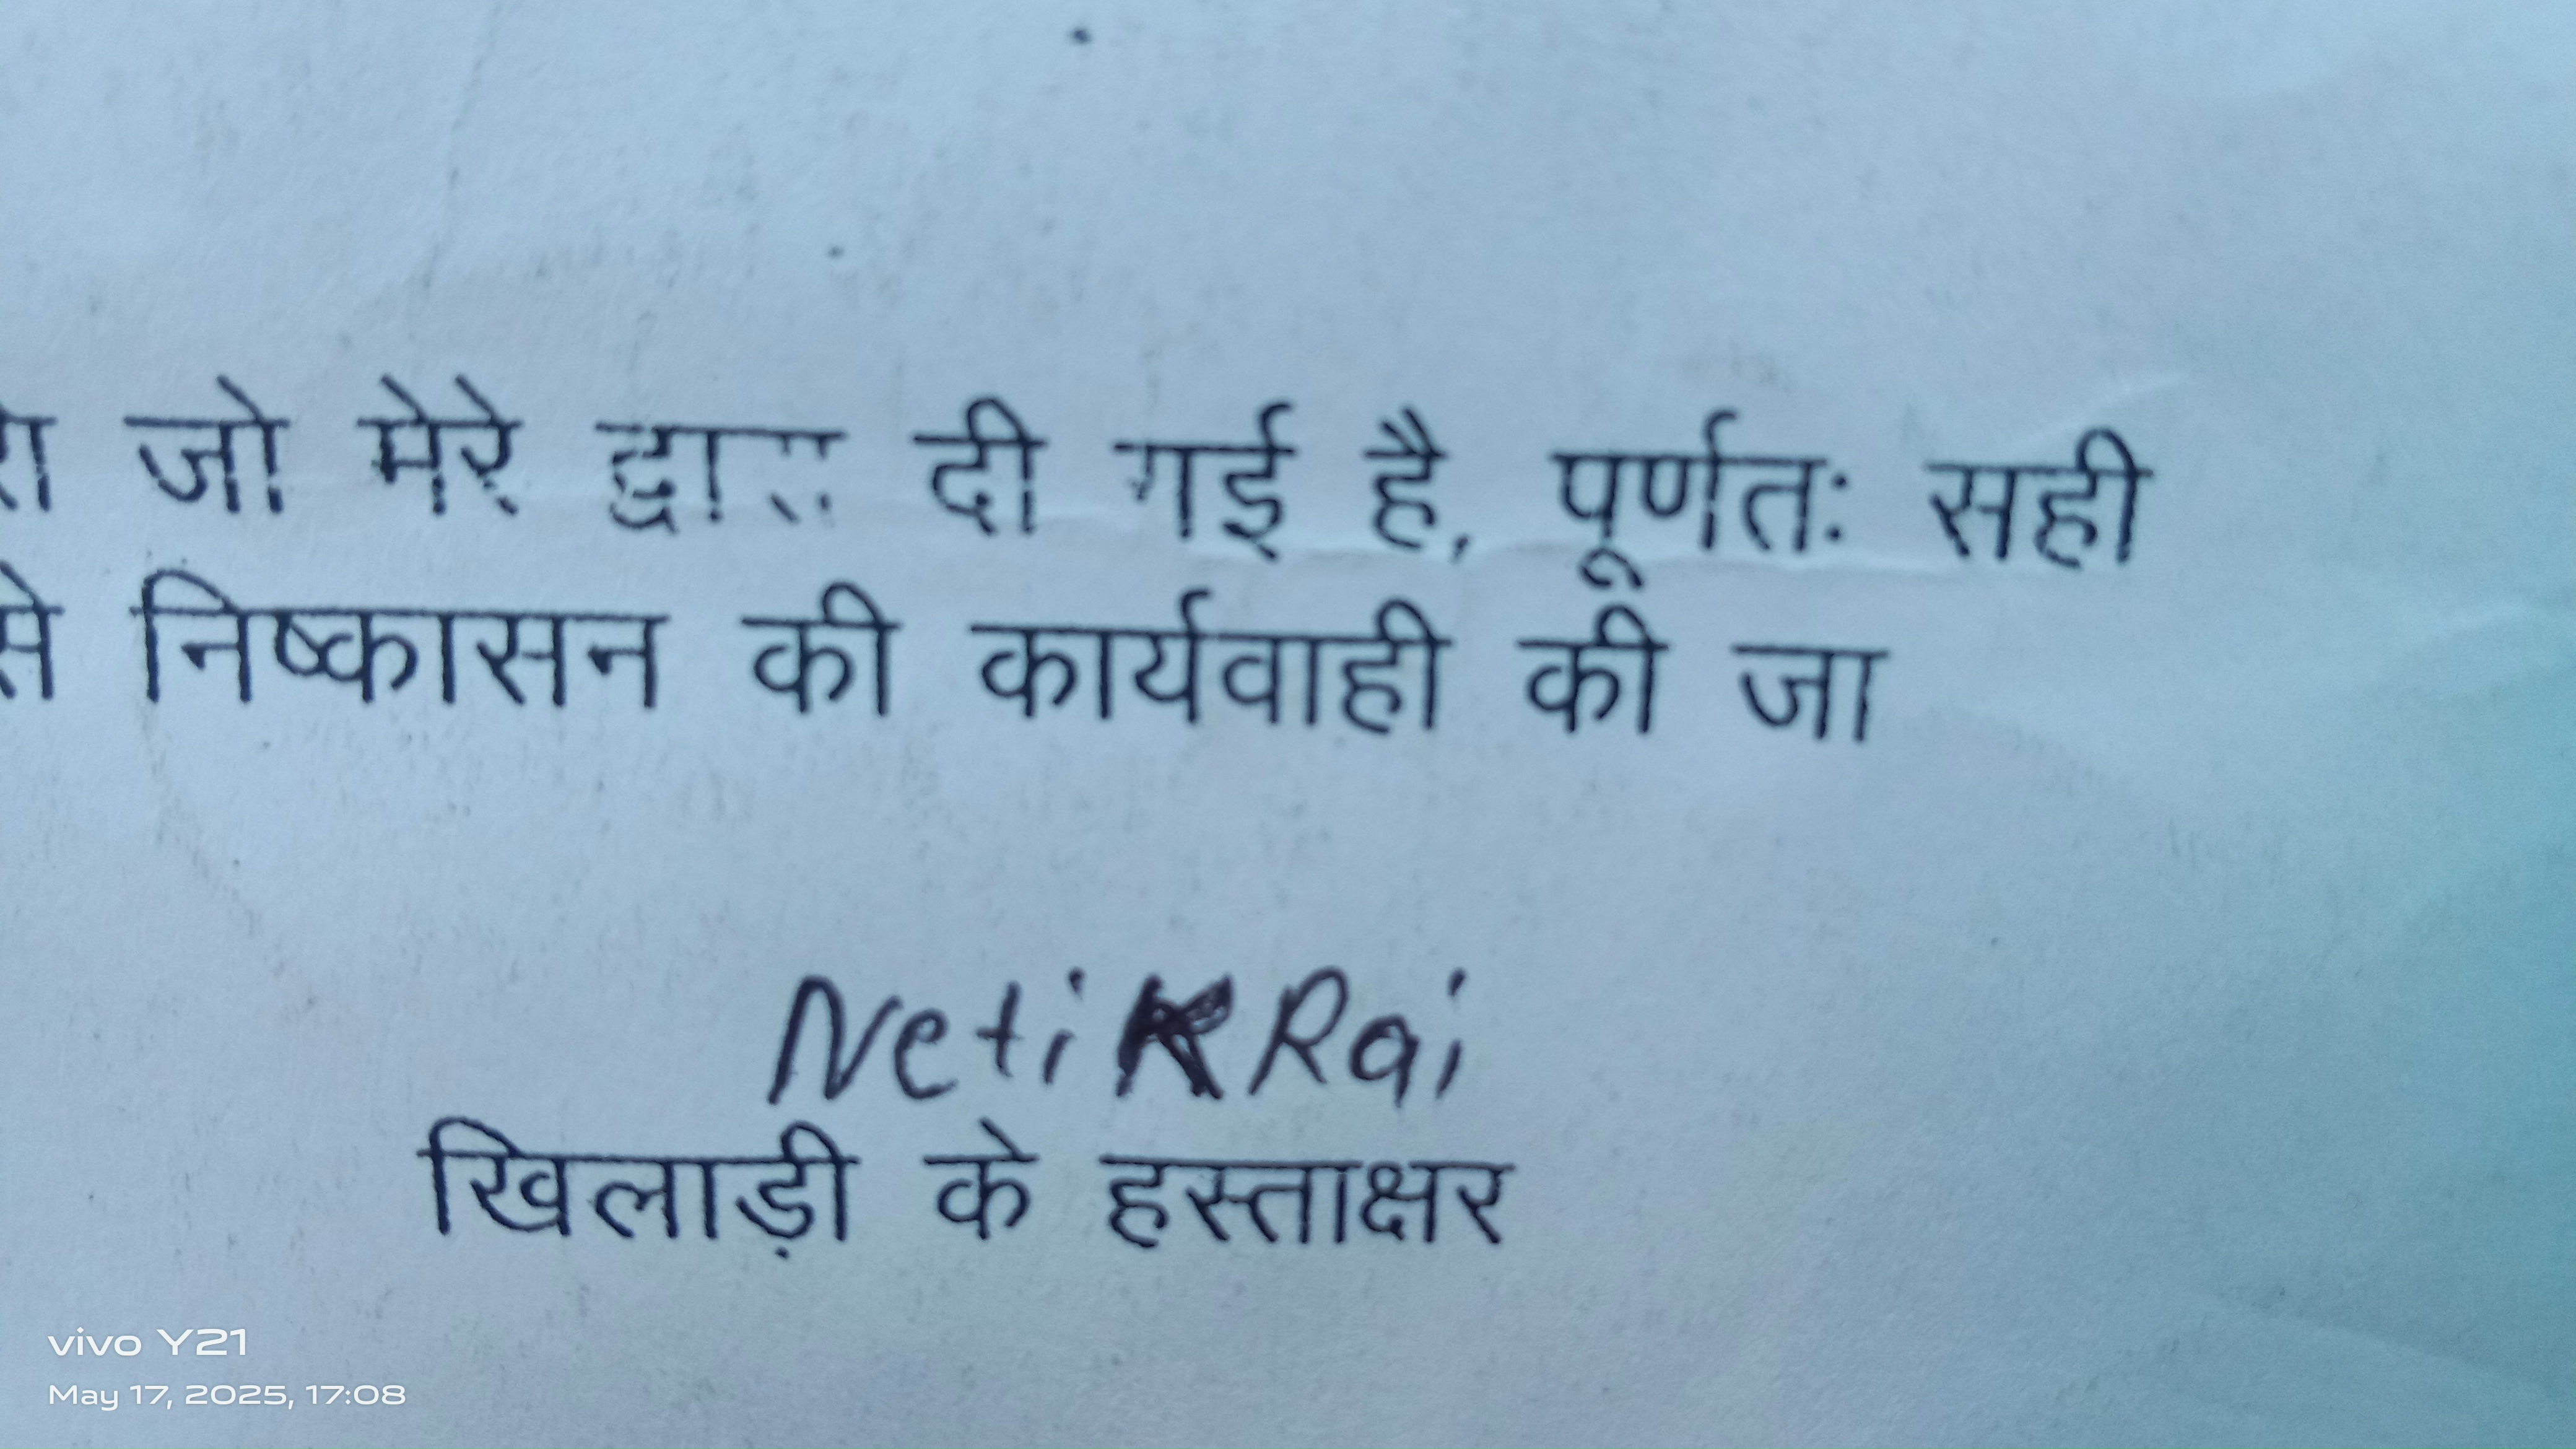 जो मेरे द्वारा दी गई है, पूर्णतः सही
से निष्कासन की कार्यवाही की जा
Netik Rai
खिलाड़ी के हस्ताक्षर
vivo Y21
May 17, 2025, 17:08